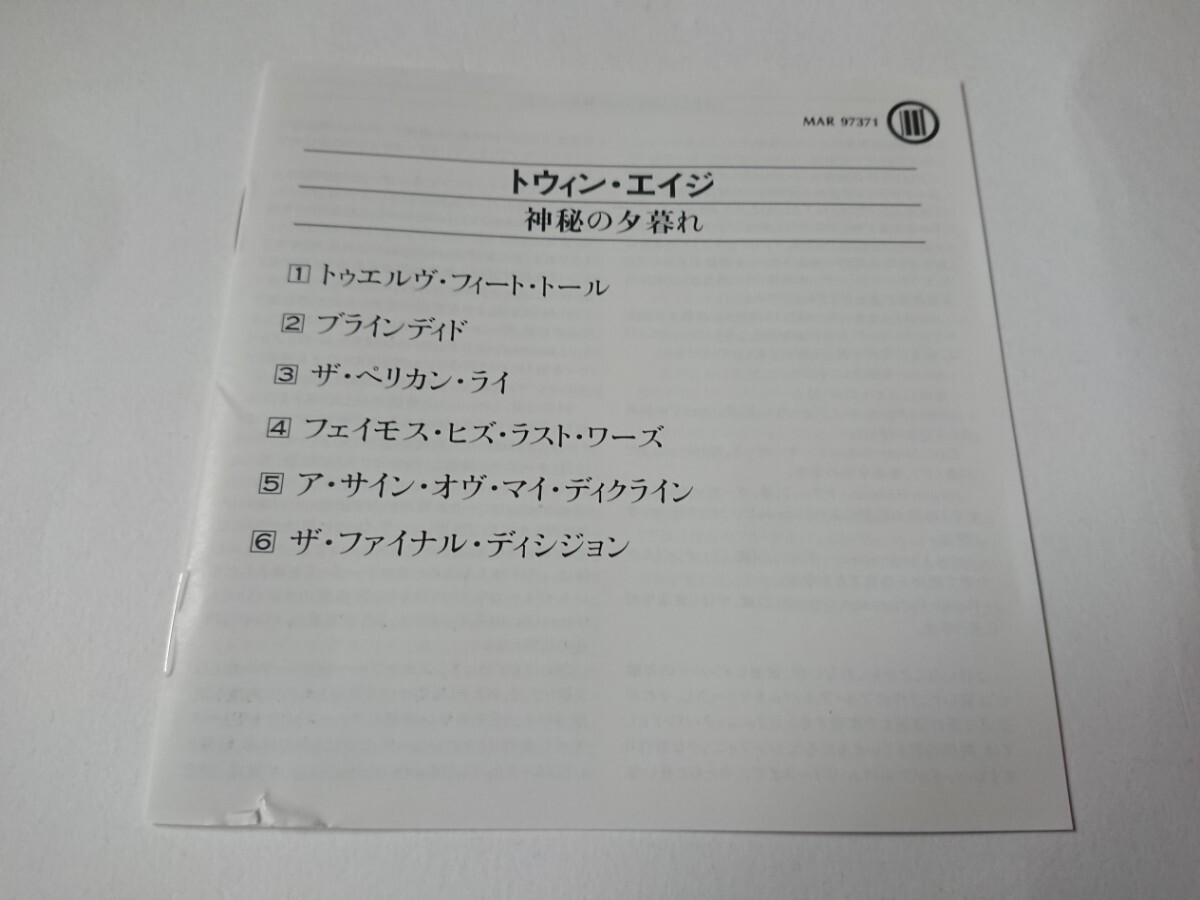 MAR 97371
トウィン・エイジ
神秘の夕暮れ
1 トゥエルヴ・フィート・トール
2 ブラインディド
3 ザ・ペリカン・ライ
4 フェイモス・ヒズ・ラスト・ワーズ
5 ア・サイン・オヴ・マイ・ディクライン
6 ザ・ファイナル・ディシジョン